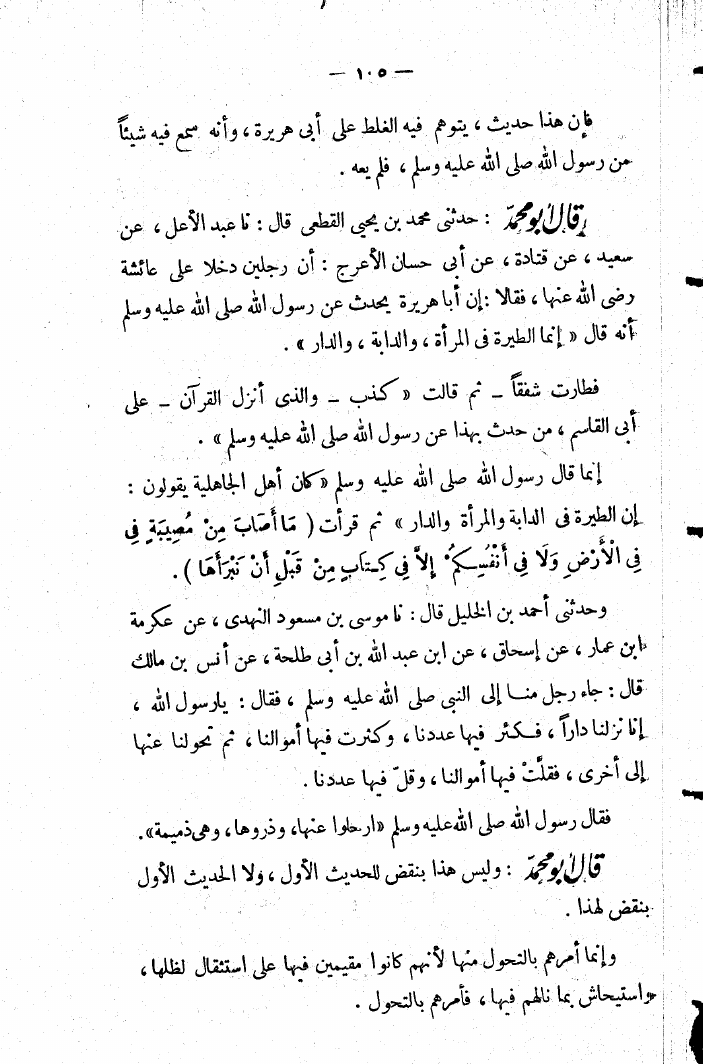 — ١٠٥ —
فإن هذا حديث ، يتوهم فيه الغلط على أبى هريرة ، وأنه سمع فيه شيئاً
من رسول الله صلى الله عليه وسلم ، فلم يعه .
قال أبو محمد : حدثنى محمد بن يحيى القطعى قال : نا عبد الأعلى ، عن
سعيد ، عن قتادة ، عن أبى حسان الأعرج : أن رجلين دخلا على عائشة
رضى الله عنها ، فقالا : إن أبا هريرة يحدث عن رسول الله صلى الله عليه وسلم
أنه قال « إنما الطيرة فى المرأة ، والدابة ، والدار » .
فطارت شفقاً ــ ثم قالت « كذب ــ والذى أنزل القرآن ــ على
أبى القاسم ، من حدث بهذا عن رسول الله صلى الله عليه وسلم » .
إنما قال رسول الله صلى الله عليه وسلم « كان أهل الجاهلية يقولون :
إن الطيرة فى الدابة والمرأة والدار » ثم قرأت ( مَا أَصَابَ مِنْ مُصِيبَةٍ فِى
فِى الْأَرْضِ وَلَا فِى أَنْفُسِكُمْ إِلاَّ فِى كِتَابٍ مِنْ قَبْلِ أَنْ نَبْرَأَهَا ) .
وحدثنى أحمد بن الخليل قال : نا موسى بن مسعود النهدى ، عن عكرمة
ابن عمار ، عن إسحاق ، عن ابن عبد الله بن أبى طلحة ، عن أنس بن مالك
قال : جاء رجل منا إلى النبى صلى الله عليه وسلم ، فقال : يا رسول الله ،
إنا نزلنا داراً ، فكثر فيها عددنا ، وكثرت فيها أموالنا ، ثم تحولنا عنها
إلى أخرى ، فقلَّتْ فيها أموالنا ، وقلّ فيها عددنا .
فقال رسول الله صلى الله عليه وسلم « ارحلوا عنها ، وذروها ، وهى ذميمة » .
قال أبو محمد : وليس هذا بنقض للحديث الأول ، ولا الحديث الأول
بنقض لهذا .
وإنما أمرهم بالتحول منها لأنهم كانوا مقيمين فيها على استثقال لظلها ،
واستيحاش بما نالهم فيها ، فأمرهم بالتحول .